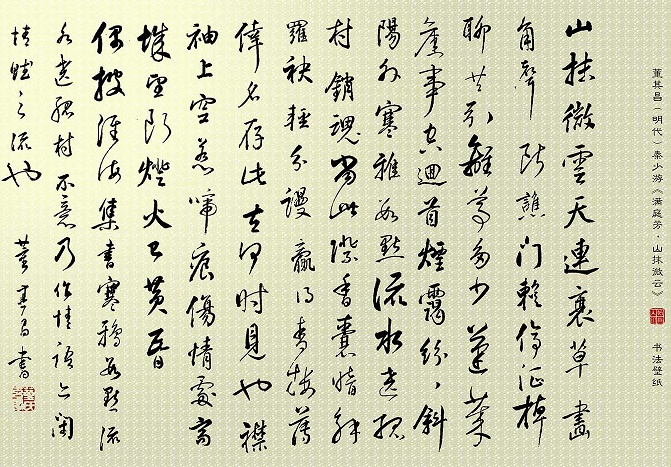 董其昌(明代)秦少游《满庭芳·山抹微云》 书法壁纸
山抹微雲天連衰草畫
角聲断譙門暫停征棹
聊共引離尊多少蓬莱
舊事空迴首煙靄紛〻斜
陽外寒雅數點流水遶孤
村銷魂當此際香囊暗解
羅袂輕分謾贏得青樓薄
倖名存此去何時見也襟
袖上空惹啼痕傷情處高
城望断燈火已黄昏
偶披淮海集書寒鴉數點流
水遶孤村不意乃作情語亦閑
情賦之流也 董其昌書